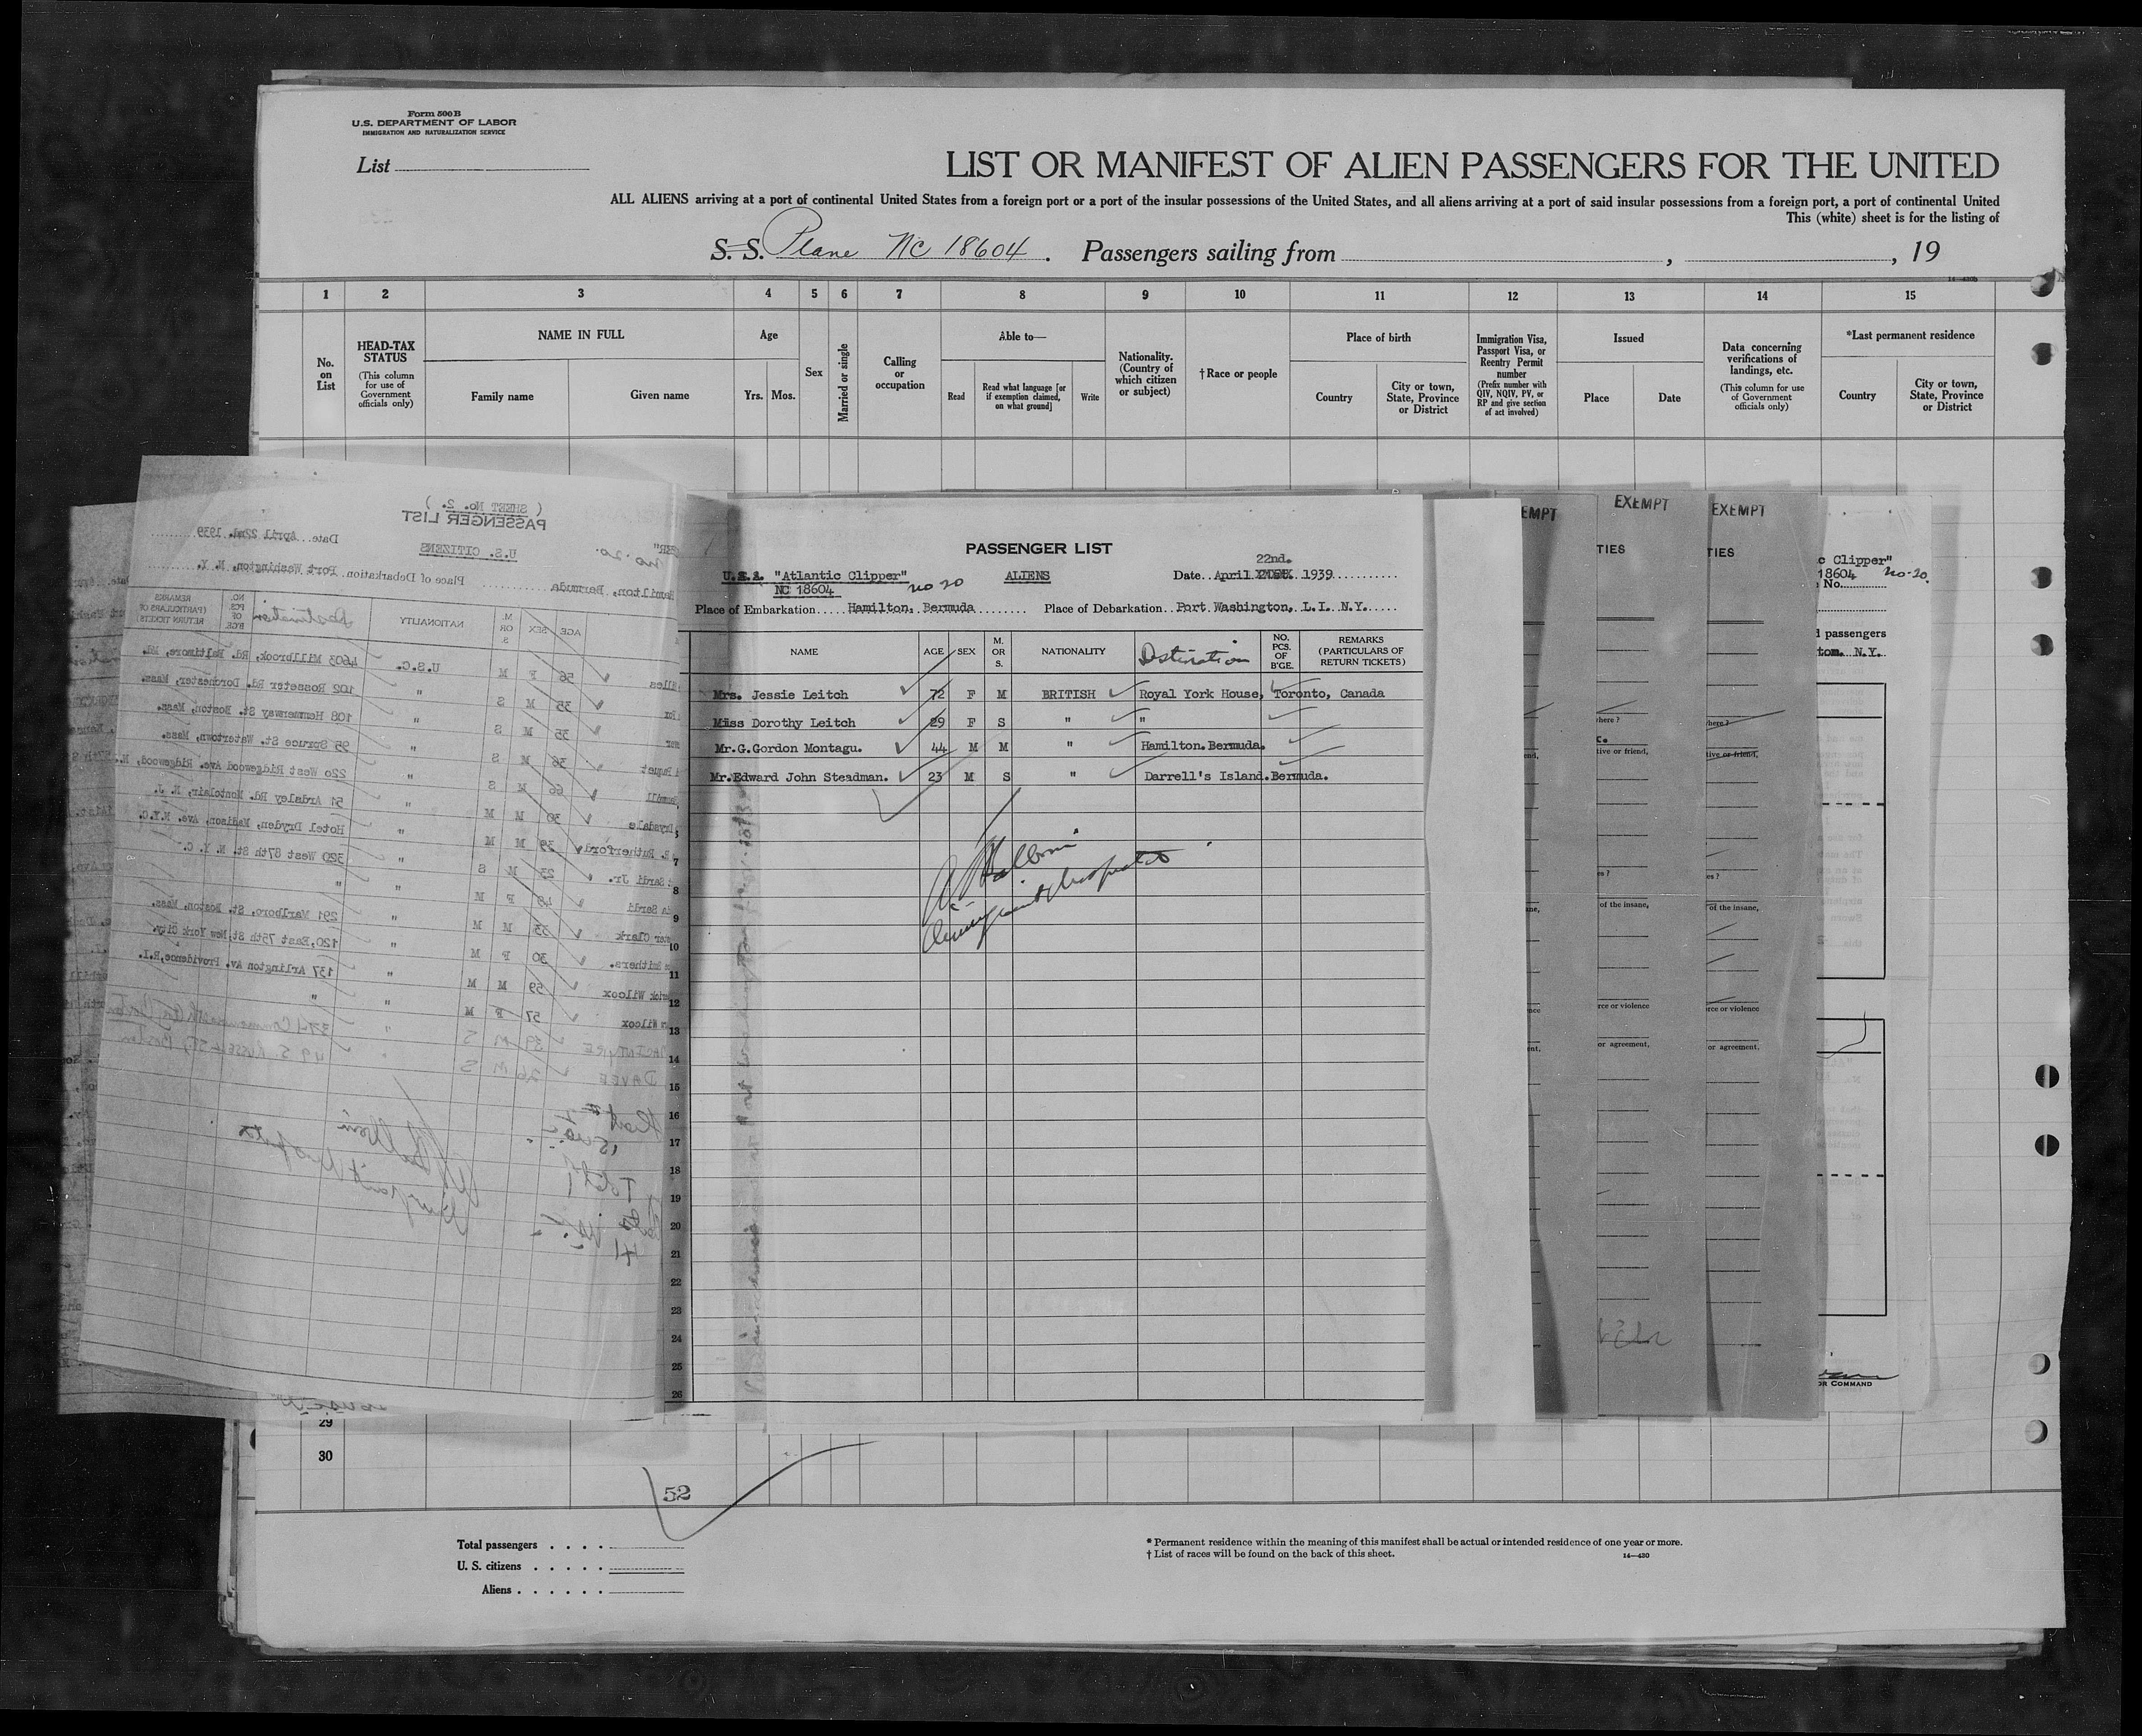 Form 500 B
U.S. DEPARTMENT OF LABOR
IMMIGRATION AND NATURALIZATION SERVICE
List
LIST OR MANIFEST OF ALIEN PASSENGERS FOR THE UNITED
ALL ALIENS arriving at a port of continental United States from a foreign port or a port of the insular possessions of the United States, and all aliens arriving at a port of said insular possessions from a foreign port, a port of continental United
This (white) sheet is for the listing of
S. S. Plane NC 18604. Passengers sailing from , , 19
1 2 3 4 5 6 7 8 9 10 11 12 13 14 15
No. on List
HEAD-TAX STATUS (This column for use of Government officials only)
NAME IN FULL
Family name Given name
Age
Yrs. Mos.
Sex
Married or single
Calling or occupation
Able to—
Read Read what language [or if exemption claimed, on what ground] Write
Nationality. (Country of which citizen or subject)
†Race or people
Place of birth
Country City or town, State, Province or District
Immigration Visa, Passport Visa, or Reentry Permit number (Prefix number with QIV, NQIV, PV, or RP and give section of act involved)
Issued
Place Date
Data concerning verifications of landings, etc. (This column for use of Government officials only)
*Last permanent residence
Country City or town, State, Province or District
( SHEET No. 2. )
PASSENGER LIST
U.S. CITIZENS
Date April 22nd. 1939
no. 20.
Hamilton, Bermuda Place of Debarkation Port Washington, N. Y.
AGE SEX M. OR S. NATIONALITY Destination NO. PCS. OF B'GE. REMARKS (PARTICULARS OF RETURN TICKETS)
56 F M U.S.C. 4603 Millbrook, Rd. Baltimore, Md.
35 M S " 102 Rosseter Rd. Dorchester, Mass.
35 M S " 108 Hemmerway St. Boston, Mass.
36 M S " 95 Spruce St. Watertown, Mass.
66 M S " 220 West Ridgewood Ave. Ridgewood, N.
Drysdale 30 M M " 51 Ardsley Rd. Montclair, N. J.
R. Rutherford 39 M M " Hotel Dryden, Madison, Ave. N.Y.C.
Sardi Jr. 23 M S " 320 West 87th St. N. Y. C.
Sardi 48 F M " "
Clark 33 M M " 291 Marlboro, St. Boston, Mass.
Smithers. 30 F M " 120, East 75th St. New York City.
Wilcox 59 M M " 137 Arlington Av. Providence, R.I.
Wilcox 57 F M " "
MACINTYRE 39 M S " 374 Commonwealth Boston
DAVEE 26 M S " 49 S. RUSSELL ST, Boston
PASSENGER LIST
"Atlantic Clipper" ALIENS Date April 22nd. 1939
NC 18604 no 20
Place of Embarkation Hamilton. Bermuda Place of Debarkation Port Washington, L.I. N.Y.
NAME AGE SEX M. OR S. NATIONALITY Destination NO. PCS. OF B'GE. REMARKS (PARTICULARS OF RETURN TICKETS)
Mrs. Jessie Leitch 72 F M BRITISH Royal York House, Toronto, Canada
Miss Dorothy Leitch 29 F S " "
Mr. G. Gordon Montagu. 44 M M " Hamilton. Bermuda.
Mr. Edward John Steadman. 23 M S " Darrell's Island. Bermuda.
7
8
9
10
11
12
13
14
15
16
17
18
19
20
21
22
23
24
25
26
EMPT
EXEMPT
EXEMPT
TIES
TIES
here ?
here ?
tive or friend,
tive or friend,
es ?
es ?
of the insane,
of the insane,
rce or violence
rce or violence
or agreement,
or agreement,
c Clipper"
18604 no-20.
No.
passengers
N.Y.
COMMAND
29
30
52
Total passengers
U. S. citizens
Aliens
* Permanent residence within the meaning of this manifest shall be actual or intended residence of one year or more.
† List of races will be found on the back of this sheet. 14—430